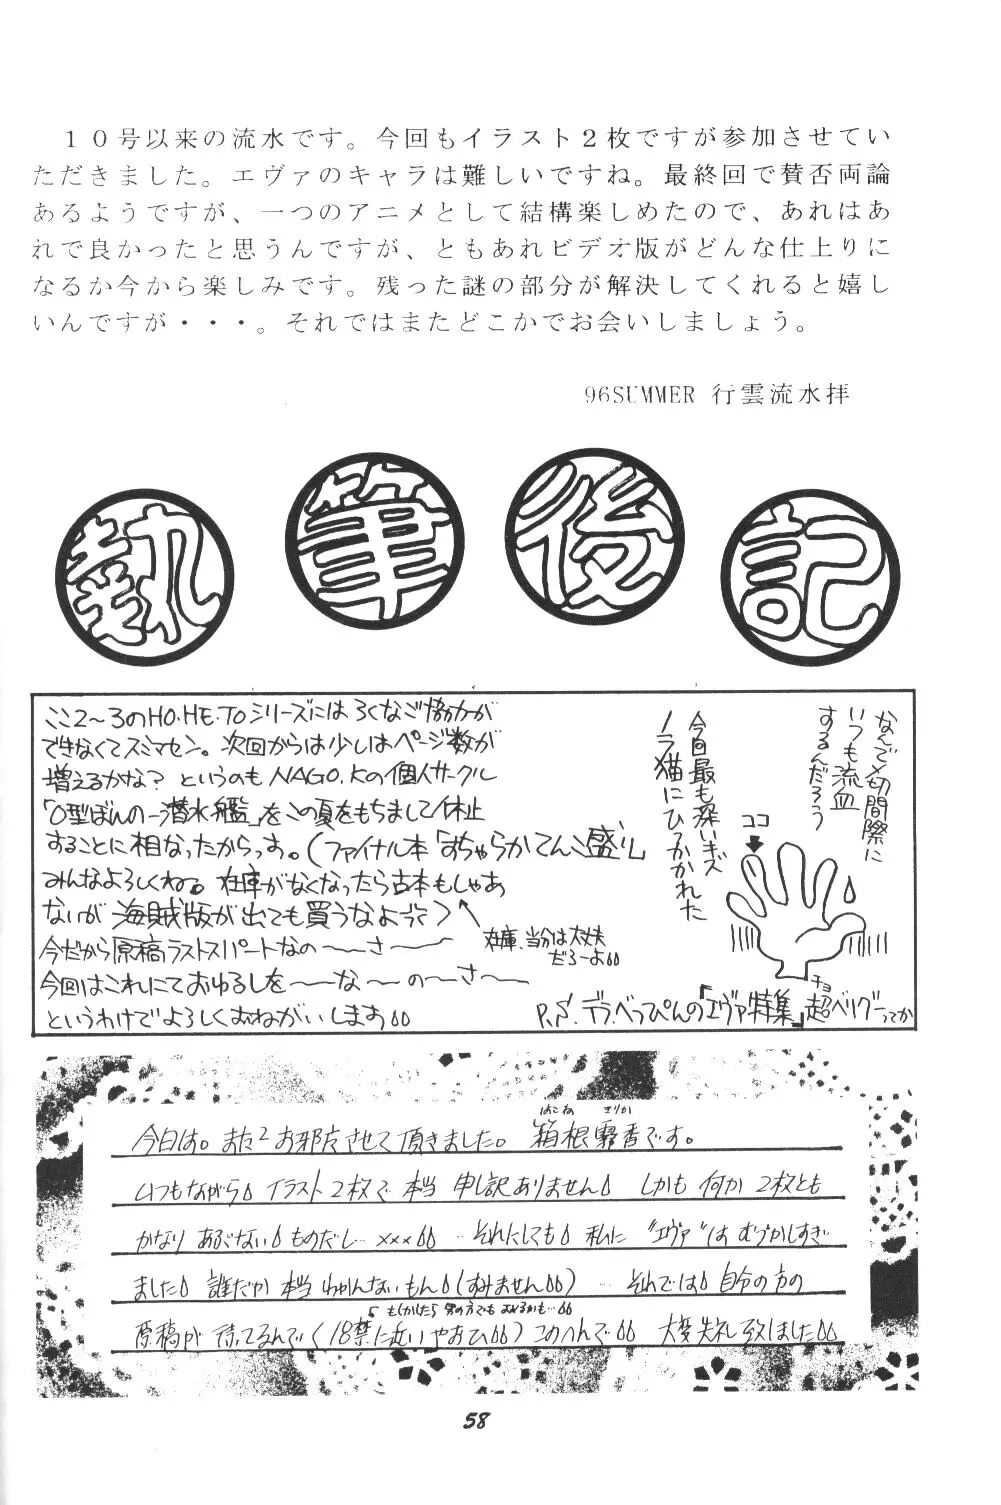 10号以来の流水です。今回もイラスト2枚ですが参加させてい
ただきました。エヴァのキャラは難しいですね。最終回で賛否両論
あるようですが、一つのアニメとして結構楽しめたので、あれはあ
れで良かったと思うんですが、ともあれビデオ版がどんな仕上りに
なるか今から楽しみです。残った謎の部分が解決してくれると嬉し
いんですが・・・。それではまたどこかでお会いしましょう。
96SUMMER 行雲流水拝
執筆後記
ここ2〜3のHO・HE・TOシリーズにはろくなご協力が
できなくてスミマセン。次回からは少しはページ数が
増えるかな? というのも NAGO.Kの個人サークル
「O型ぼんの一潜水艦」をこの夏をもちまして休止
することに相なったからっす。(ファイナル本「おちゃらかてんこ盛り」
みんなよろしくね。在庫がなくなったら古本もしゃあ
ないが海賊版が出ても買うなよっ)
在庫、当分は大丈夫
だろーよ
今だから原稿ラストスパートなの〜〜さ〜〜
今回はこれにておゆるしを〜〜な〜〜の〜さ〜
というわけでよろしくおねがいします
なんで〆切間際に
いつも流血
するんだろう
ココ
今回最も深いキズ
ノラ猫にひっかかれた
P.S. デラべっぴんの「エヴァ特集」超ベリグーってか
チョ
はこね えりか
今日は。また2お邪魔させて頂きました。箱根 香です。
いつもながら イラスト2枚で 本当 申し訳ありません しかも 何か 2枚とも
かなり あぶない ものだし…×××…それにしても 私に "エヴァ"は むづかしすぎ
ました 誰だか 本当 わかんないもん(すみません)…それでは 自分の方の
もしかしたら 男の方でも おえるかも…
原稿が 待ってるんで(18禁に近いやおひ)このへんで 大変失礼致しました
58